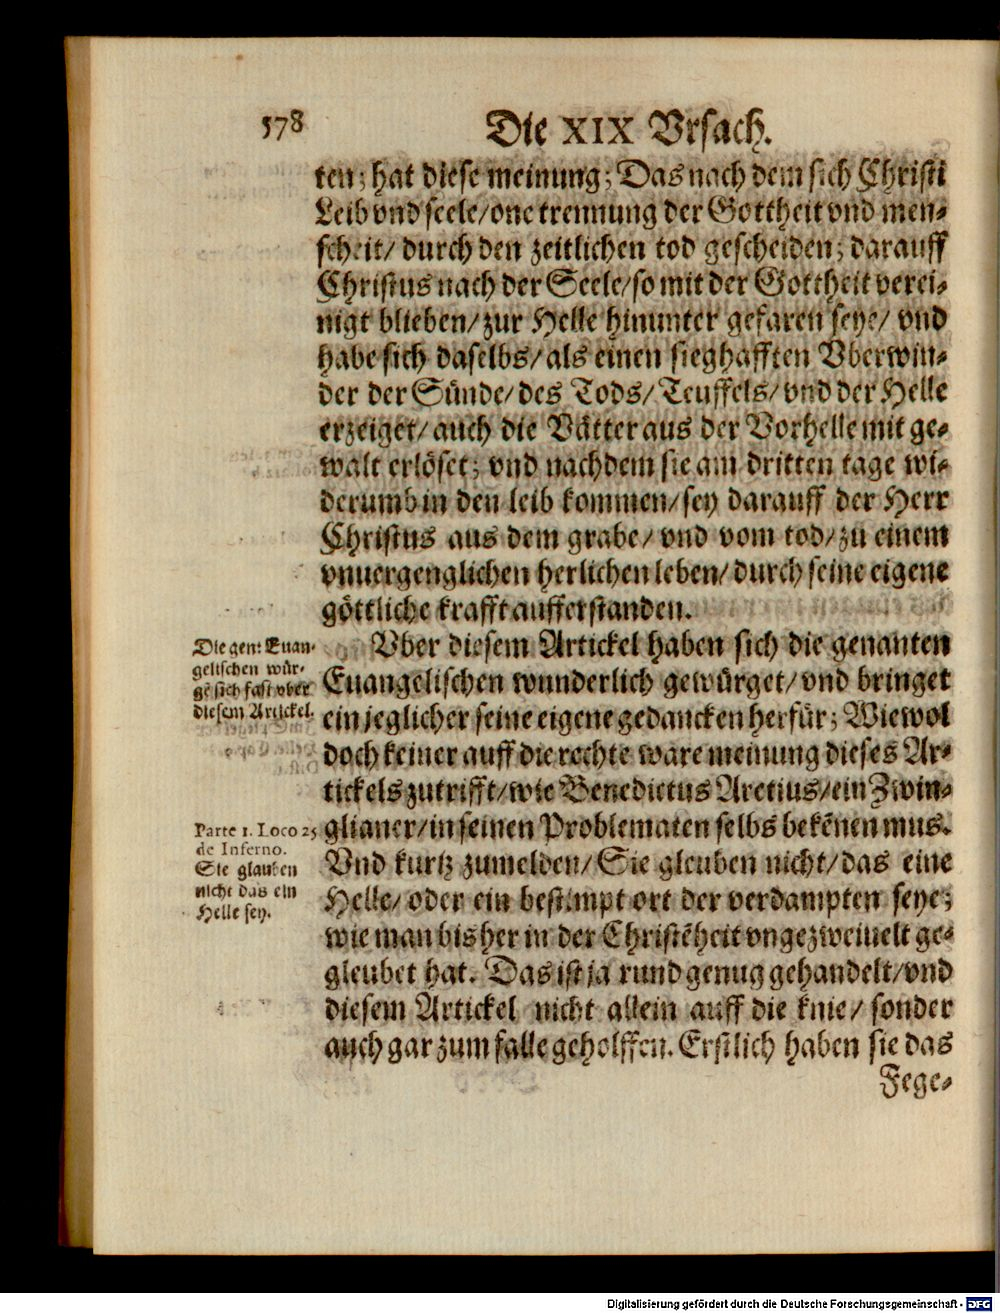 578
Die XIX Vrsach.
ten; hat diese meinung; Das nach dem sich Christi
Leib vnd seele/ one trennung der Gottheit vnd men-
scheit/ durch den zeitlichen tod gescheiden; darauff
Christus nach der Seele/ so mit der Gottheit verei-
nigt blieben/ zur Helle hinunter gefaren seye/ vnd
habe sich daselbs/ als einen sieghafften Vberwin-
der der Sünde/ des Tods/ Teuffels/ vnd der Helle
erzeiget/ auch die Vätter aus der Vorhelle mit ge-
walt erlöset; vnd nachdem sie am dritten tage wi-
derumb in den leib kommen/ sey darauff der Herr
Christus aus dem grabe/ vnd vom tod/ zu einem
vnuergenglichen herlichen leben/ durch seine eigene
göttliche krafft aufferstanden.
Vber diesem Artickel haben sich die genanten
Euangelischen wunderlich gewürget/ vnd bringet
ein jeglicher seine eigene gedancken herfür; Wiewol
doch keiner auff die rechte ware meinung dieses Ar-
tickels zutrifft/ wie Benedictus Aretius/ ein Zwin-
glianer/ in seinen Problematen selbs bekēnen mus.
Vnd kurtz zumelden/ Sie gleuben nicht/ das eine
Helle/ oder ein bestimpt ort der verdampten seye;
wie man bisher in der Christēheit vngezweiuelt ge-
gleubet hat. Das ist ja rund genug gehandelt/ vnd
diesem Artickel nicht allein auff die knie/ sonder
auch gar zum falle geholffen. Erstlich haben sie das
Fege-
Die gen: Euan-
gelischen wür-
gē sich fast vber
diesem Artickel.
Parte 1. Loco 25
de Inferno.
Sie glauben
nicht das ein
Helle sey.
Digitalisierung gefördert durch die Deutsche Forschungsgemeinschaft - DFG